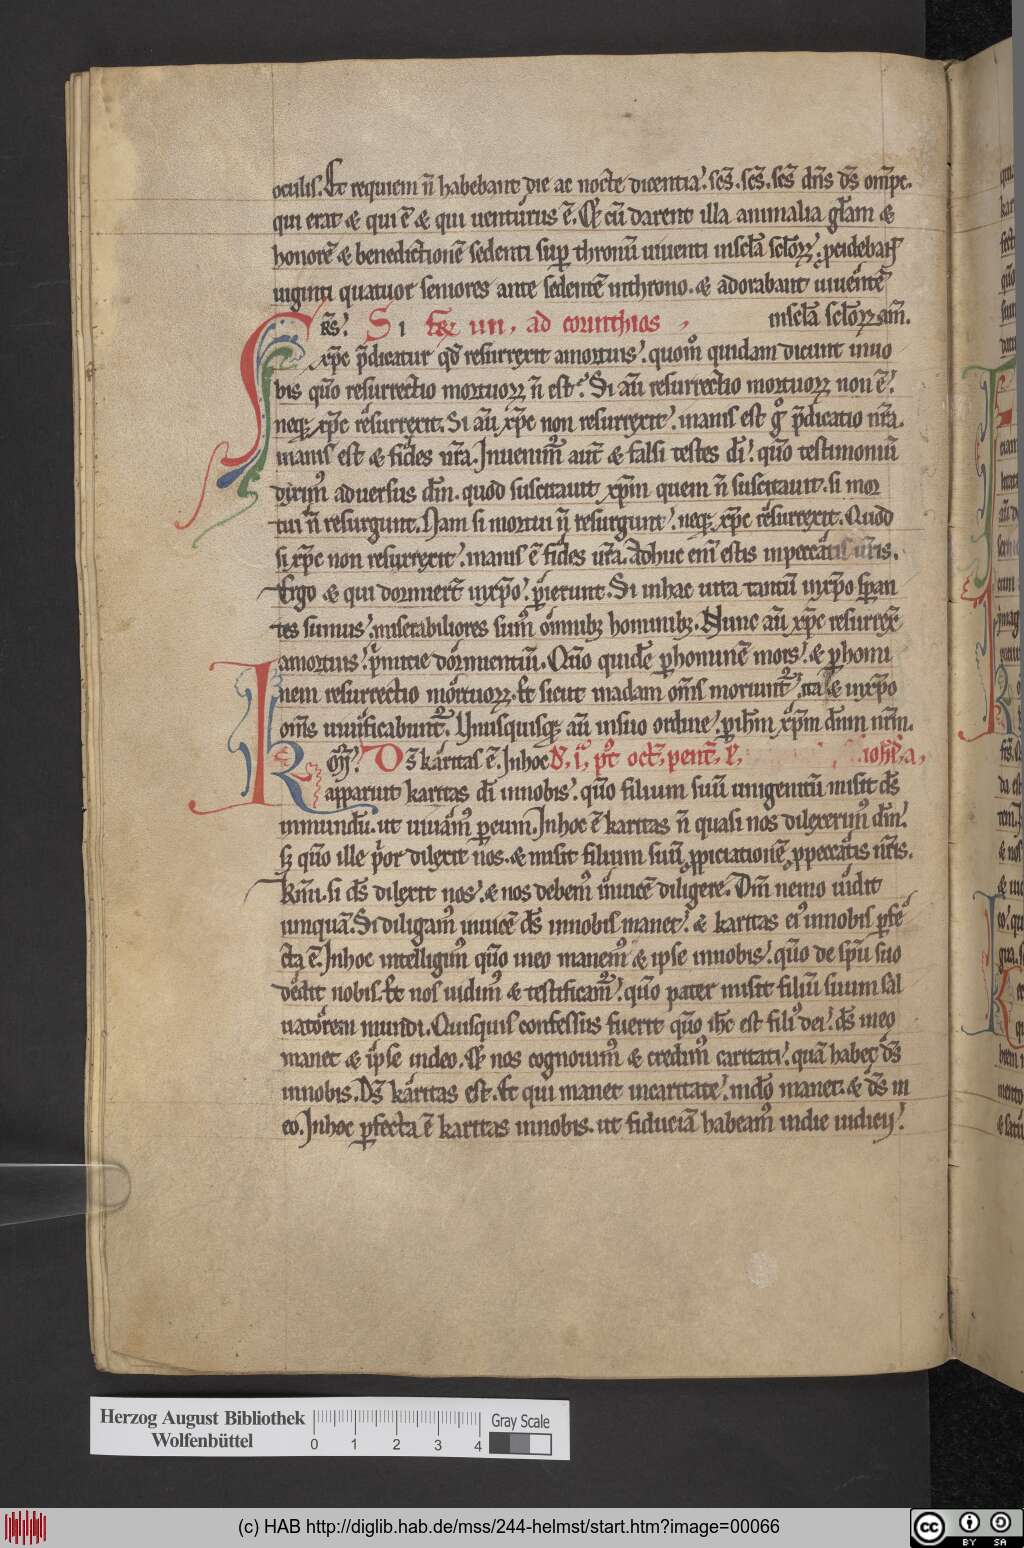 oculis. Et requiem n̄ habebant die ac nocte dicentia. sc̄s. sc̄s. sc̄s dn̄s ds̄ om̄pc.
qui erat & qui ē & qui uenturus ē. Et cū darent illa animalia gl̄am &
honorē & benedictionē sedenti sup thronū uiuenti inscl̄a scl̄oꝝ. pcidebant
uiginti quatuor seniores ante sedentē inthrono. & adorabant uiuentē
Si ad corinthios inscl̄a scl̄oꝝ. am̄.
xp̄c p̄dicatur qd̄ resurrexit amortuis. quom̄ quidam dicunt inuo
bis quō resurrectio mortuoꝝ n̄ est? Si aū resurrectio mortuoꝝ non ē.
neqꝫ xp̄c resurrexit. Si aū xp̄c non resurrexit. inanis est gͦ p̄dicatio nr̄a.
inanis est & fides ur̄a. Inuenimꝰ aut̄ & falsi testes dī. quō testimoniū
diximꝰ aduersus dm̄. quod suscitauit xp̄m quem n̄ suscitauit. si mor
tui n̄ resurgunt. Nam si mortui n̄ resurgunt. neqꝫ xp̄c resurrexit. Quod
si xp̄c non resurrexit. inanis ē fides ur̄a. Adhuc enī estis inpeccatis ur̄is.
Ergo & qui dormiert̄ inxp̄o. pierunt. Si inhac uita tantū inxp̄o span
tes sumus. miserabiliores sumꝰ omnibꝫ hominibꝫ. Nunc aū xp̄c resurrex̄
amortuis. p̄mitie dormientiū. Qūo quidē phominē mors. & phomi
nem resurrectio mortuoꝝ. Et sicut inadam om̄s moriunt̄. ita & inxp̄o
om̄s uiuificabunt̄. Vnusquisqꝫ aū insuo ordine. p ih̄m xp̄m dn̄m nr̄m.
Ds̄ karitas ē. Inhoc D. i. pͦt oct̄. pent̄. ioh̄is. a.
apparuit karitas dī innobis. quō filium suū unigenitū misit ds̄
inmundū. ut uiuamꝰ peum. Inhoc ē karitas n̄ quasi nos dilexerimꝰ dm̄.
sꝫ quō ille prior dilexit nos. & misit filium suū ppiciationē ppeccatis nr̄is.
Km̄i. si ds̄ dilexit nos. & nos debemꝰ inuicē diligere. Dm̄ nemo uidit
unquā. Si diligamꝰ inuicē ds̄ innobis manet. & karitas eiꝰ innobis pfe
cta ē. Inhoc intelligimꝰ quō ineo manemꝰ & ipse innobis. quō de spū suo
dedit nobis. Et nos uidimꝰ & testificam̄. quō pater misit filiū suum sal
uatorem mundi. Quisquis confessus fuerit quō ih̄c est filiꝰ dei. ds̄ ineo
manet & ipse indeo. Et nos cognouimꝰ & credimꝰ caritati. quā habet ds̄
innobis. Ds̄ karitas est. Et qui manet incaritate. indō manet. & ds̄ in
eo. Inhoc pfecta ē karitas innobis. ut fiduciā habeamꝰ indie iudicij.
Herzog August Bibliothek
Wolfenbüttel
0 1 2 3 4
Gray Scale
(c) HAB http://diglib.hab.de/mss/244-helmst/start.htm?image=00066
cc BY SA